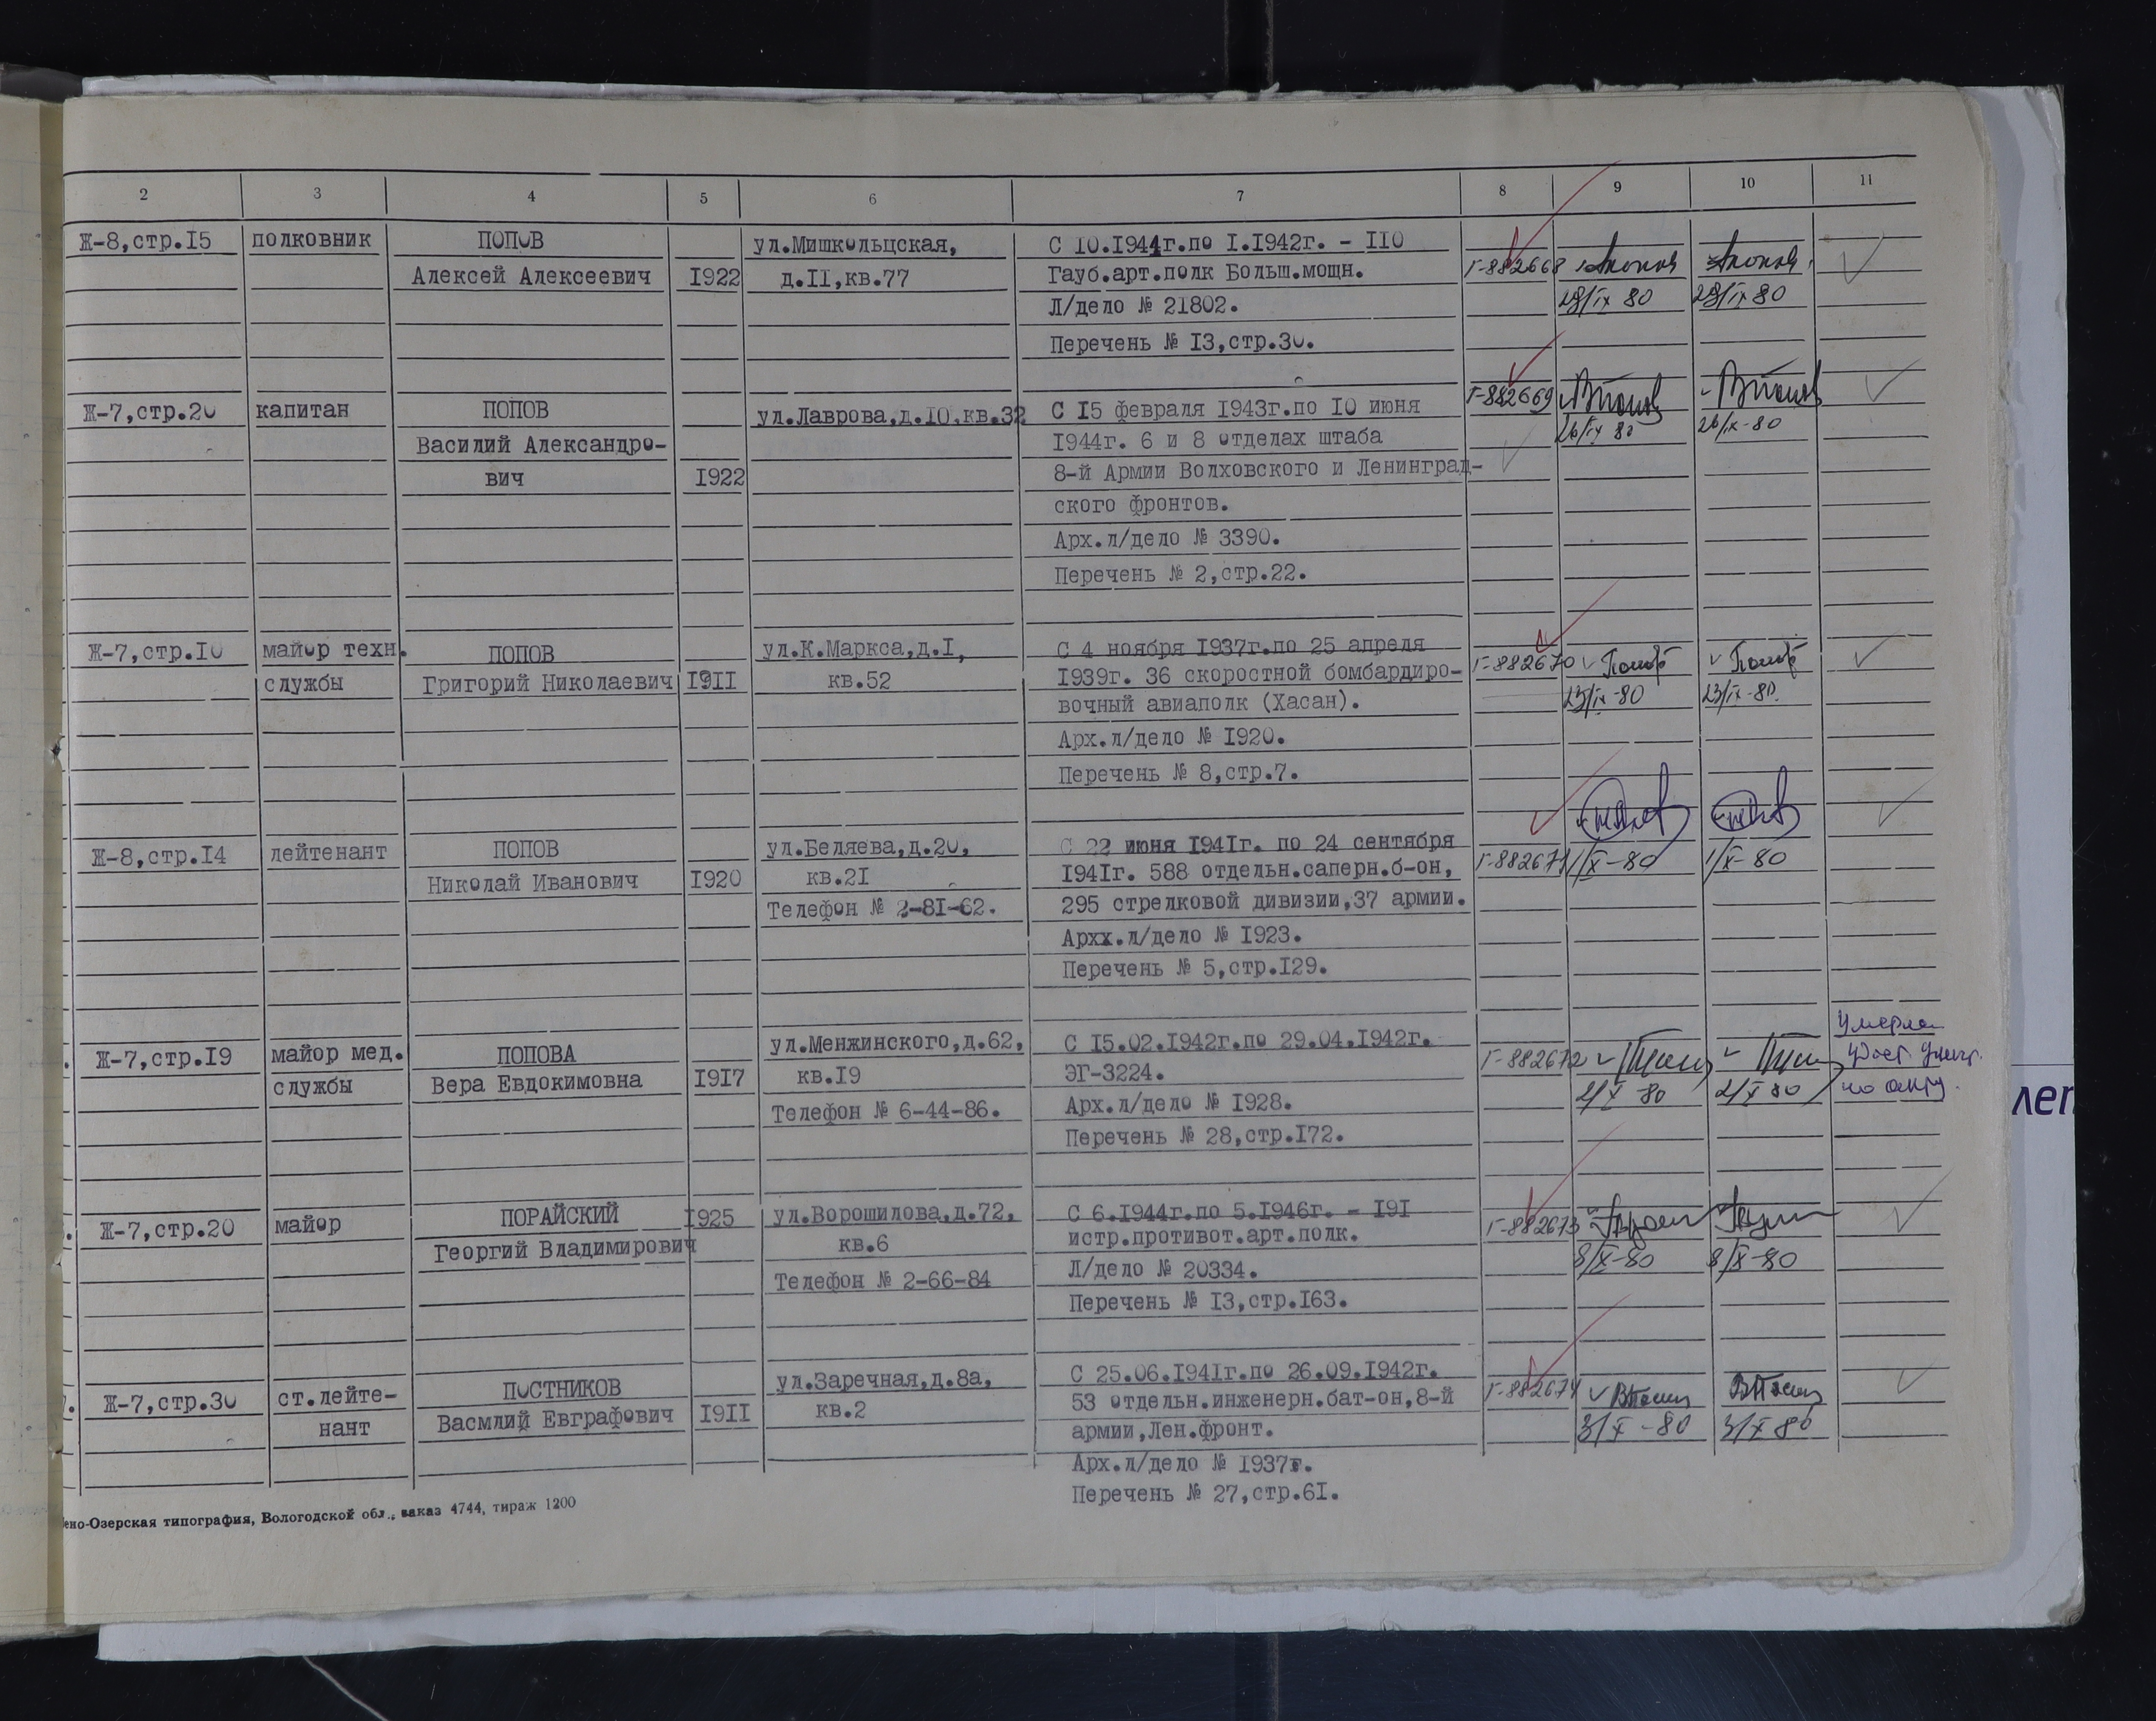 2 3 4 5 6 7 8 9 10 11
Ж-8,стр.I5 полковник ПОПОВ ул.Мишкольцская, С I0.1944г.по I.I942г. - II0
Алексей Алексеевич I922 д.II,кв.77 Гауб.арт.полк Больш.мощн. Г-882668
Л/дело № 21802. 29/IX 80 29/IX 80
Перечень № I3,стр.30.
Ж-7,стр.20 капитан ПОПОВ ул.Лаврова,д.I0,кв.32 С I5 февраля I943г.по I0 июня Г-882669
Василий Александро- I944г. 6 и 8 отделах штаба 26/IX 80 26/IX-80
вич I922 8-й Армии Волховского и Ленинград-
ского фронтов.
Арх.л/дело № 3390.
Перечень № 2,стр.22.
Ж-7,стр.I0 майор техн. ПОПОВ ул.К.Маркса,д.I, С 4 ноября I937г.по 25 апреля Г-882670
службы Григорий Николаевич I9II кв.52 I939г. 36 скоростной бомбардиро- 23/IX-80 23/IX-80.
вочный авиаполк (Хасан).
Арх.л/дело № I920.
Перечень № 8,стр.7.
Ж-8,стр.I4 лейтенант ПОПОВ ул.Беляева,д.20, С 22 июня I94Iг. по 24 сентября Г-882671 1/X-80 1/X-80
Николай Иванович I920 кв.2I I94Iг. 588 отдельн.саперн.б-он,
Телефон № 2-8I-62. 295 стрелковой дивизии,37 армии.
Архх.л/дело № I923.
Перечень № 5,стр.I29.
Ж-7,стр.I9 майор мед. ПОПОВА ул.Менжинского,д.62, С I5.02.I942г.по 29.04.I942г. Г-882672 Умерла
службы Вера Евдокимовна I9I7 кв.I9 ЭГ-3224. 2/X 80 2/X 80
Телефон № 6-44-86. Арх.л/дело № I928.
Перечень № 28,стр.I72.
Ж-7,стр.20 майор ПОРАЙСКИЙ I925 ул.Ворошилова,д.72, С 6.I944г.по 5.I946г. - I9I Г-882673
Георгий Владимирович кв.6 истр.противот.арт.полк. 8/X-80 8/X-80
Телефон № 2-66-84 Л/дело № 20334.
Перечень № I3,стр.I63.
Ж-7,стр.30 ст.лейте- ПОСТНИКОВ ул.Заречная,д.8а, С 25.06.I94Iг.по 26.09.I942г. Г-882674
нант Васмлий Евграфович I9II кв.2 53 отдельн.инженерн.бат-он,8-й 3/X-80 3/X 80
армии,Лен.фронт.
Арх.л/дело № I937г.
Перечень № 27,стр.6I.
ено-Озерская типография, Вологодской обл., заказ 4744, тираж 1200
леп